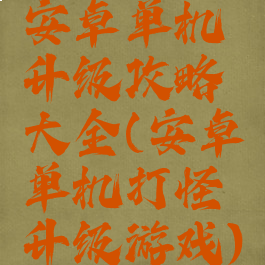 安卓单机
升级攻略
大全(安卓
单机打怪
升级游戏)